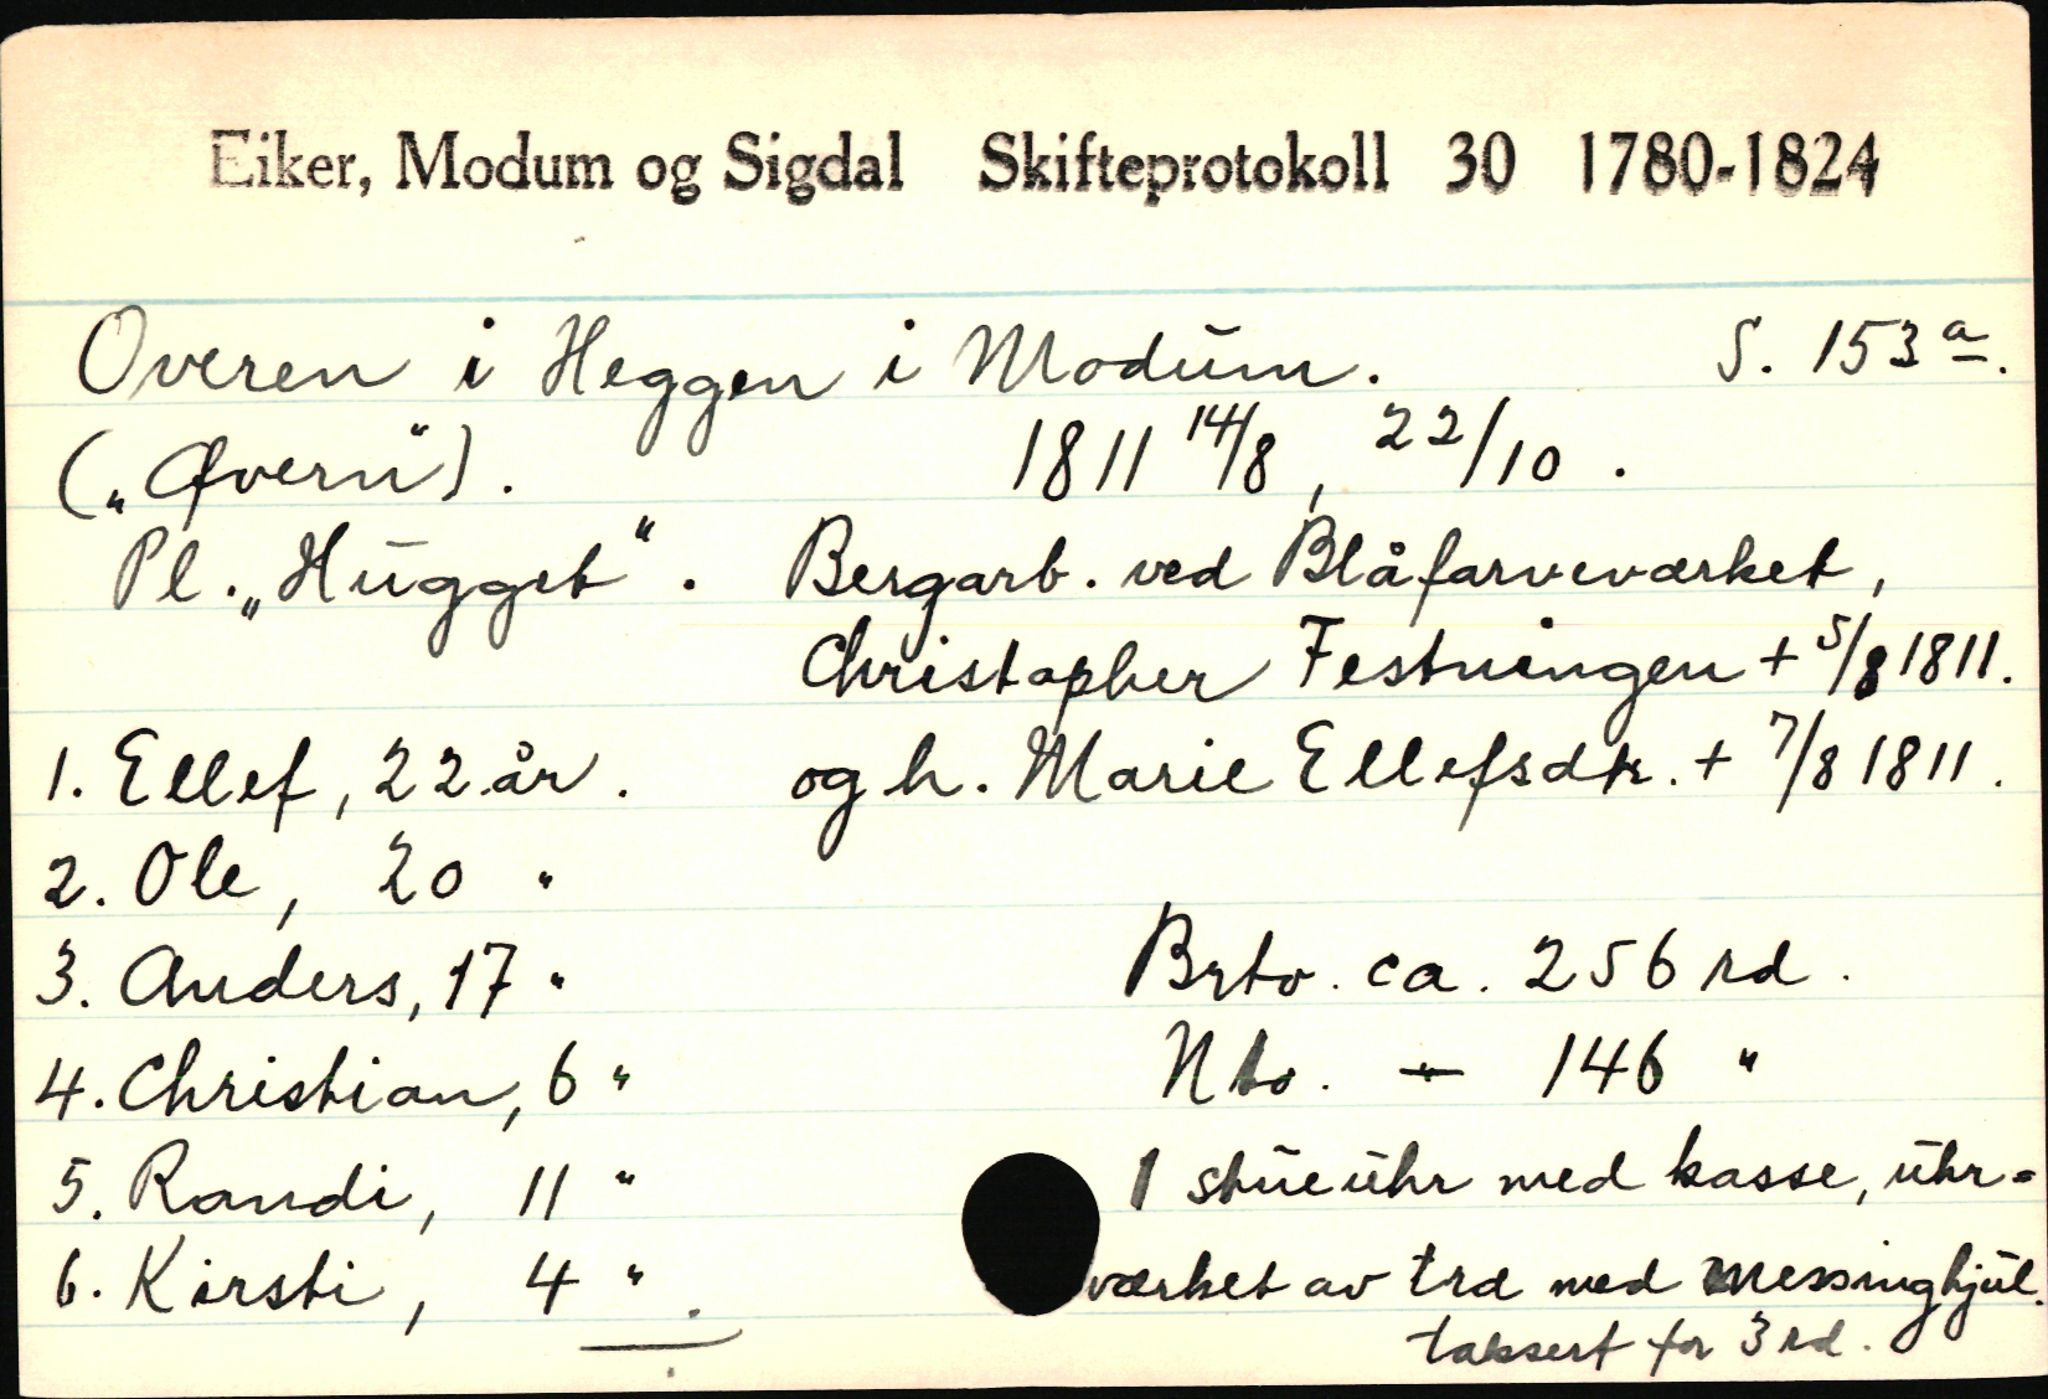 Eiker, Modum og Sigdal Skifteprotokoll 30 1780-1824
Overen i Heggen i Modum. S. 153 a.
(„Øvern“). 1811 14/8, 22/10.
Pl. „Hugget“. Bergarb. ved Blåfarveværket,
Christopher Festningen + 5/8 1811.
1. Ellef, 22 år. og h. Marie Ellefsdtr. + 7/8 1811.
2. Ole, 20 "
3. Anders, 17 " Brto. ca. 256 rd.
4. Christian, 6 " Nto. -"- 146 "
5. Randi, 11 " 1 stueuhr med kasse, uhr=
6. Kirsti, 4 ". værket av træ med messinghjul.
taksert for 3 rd.